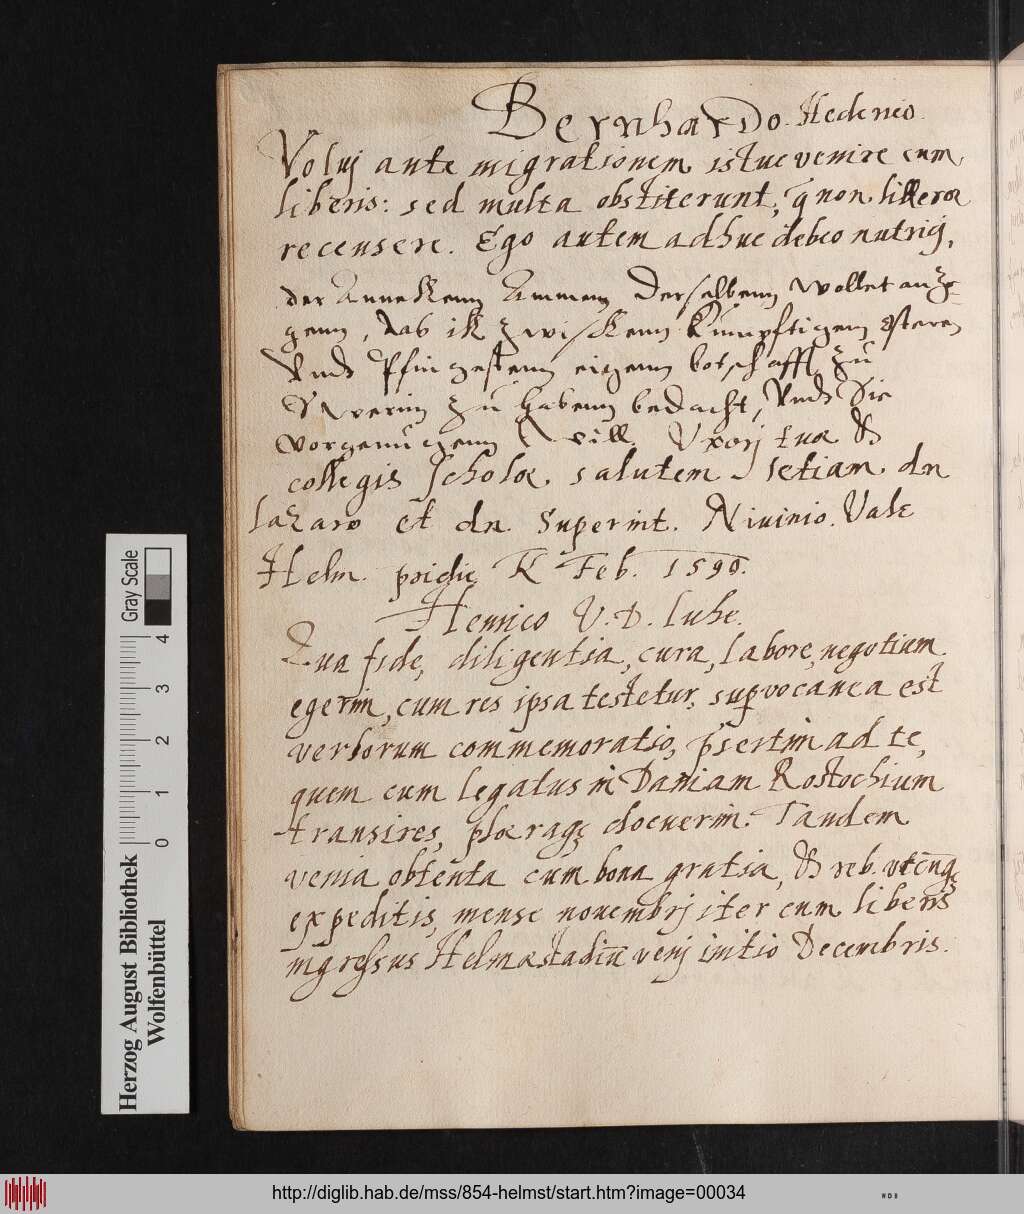 Bernhardo Hedenio.
Voluj ante migrationem istuc venire cum
liberis: sed multa obstiterunt, q̃ non litteræ
recensere. Ego autem adhuc debeo nutricj,
der Anneken Ammen, Derselben wollet anze-
genn, dab ik zwischenn Kumpftigem Osteren
Vnds Pfingestenn eigenn botschafft zu
Swerin zu habenn bedacht, Vnds Sie
vorgenugenn will. Vxorj tuæ &
collegis scholæ, salutem, etiam dn
Lazaro et dn. Superint. Niuinio. Vale
Helm. pridie K Feb. 1590.
Henrico V. D. Luhe.
Qua fide, diligentia, cura, labore, negotium
egerim, cum res ipsa testetur, supvocanea est
verborum commemoratio, p̃sertim ad te,
quem cum legatus in Daniam Rostochium
transires, plæraqꝫ docuerim. Tandem
venia obtenta cum bona gratia, & reb. vtcũqꝫ
expeditis, mense nouembrj iter cum liberis
ingressus Helmæstadiũ venj initio Decembris.
Herzog August Bibliothek
Wolfenbüttel
Gray Scale
0 1 2 3 4
http://diglib.hab.de/mss/854-helmst/start.htm?image=00034
WDB